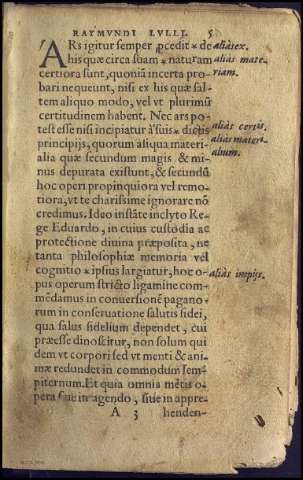 RAYMVNDI LVLLI. 5
ARs igitur semper ꝓcedit * de
his quæ circa suam * naturam
certiora sunt, quoniā incerta pro-
bari nequeunt, nisi ex his quæ sal-
tem aliquo modo, vel vt plurimū
certitudinem habent. Nec ars po-
test esse nisi incipiatur à suis * dictis
principijs, quorum aliqua materi-
alia quæ secundum magis & mi-
nus depurata existunt, & secundū
hoc operi propinquiora vel remo-
tiora, vt te charissime ignorare nō
credimus. Ideo instāte inclyto Re-
ge Eduardo, in cuius custodia ac
protectione diuina præposita, ne
tanta philosophiæ memoria vel
cognitio * ipsius largiatur, hoc o-
pus operum stricto ligamine com-
mēdamus in conuersionē pagano-
rum in conseruatione salutis fidei,
qua salus fidelium dependet, cui
præesse dinoscitur, non solum qui
dem vt corpori sed vt menti & ani-
mæ redundet in commodum sem-
piternum. Et quia omnia mētis o-
pera siue in agendo, siue in appre-
A 3 henden-
aliàs ex.
aliàs mate-
riam.
aliàs certis.
aliàs materi-
alium.
aliàs impijs.